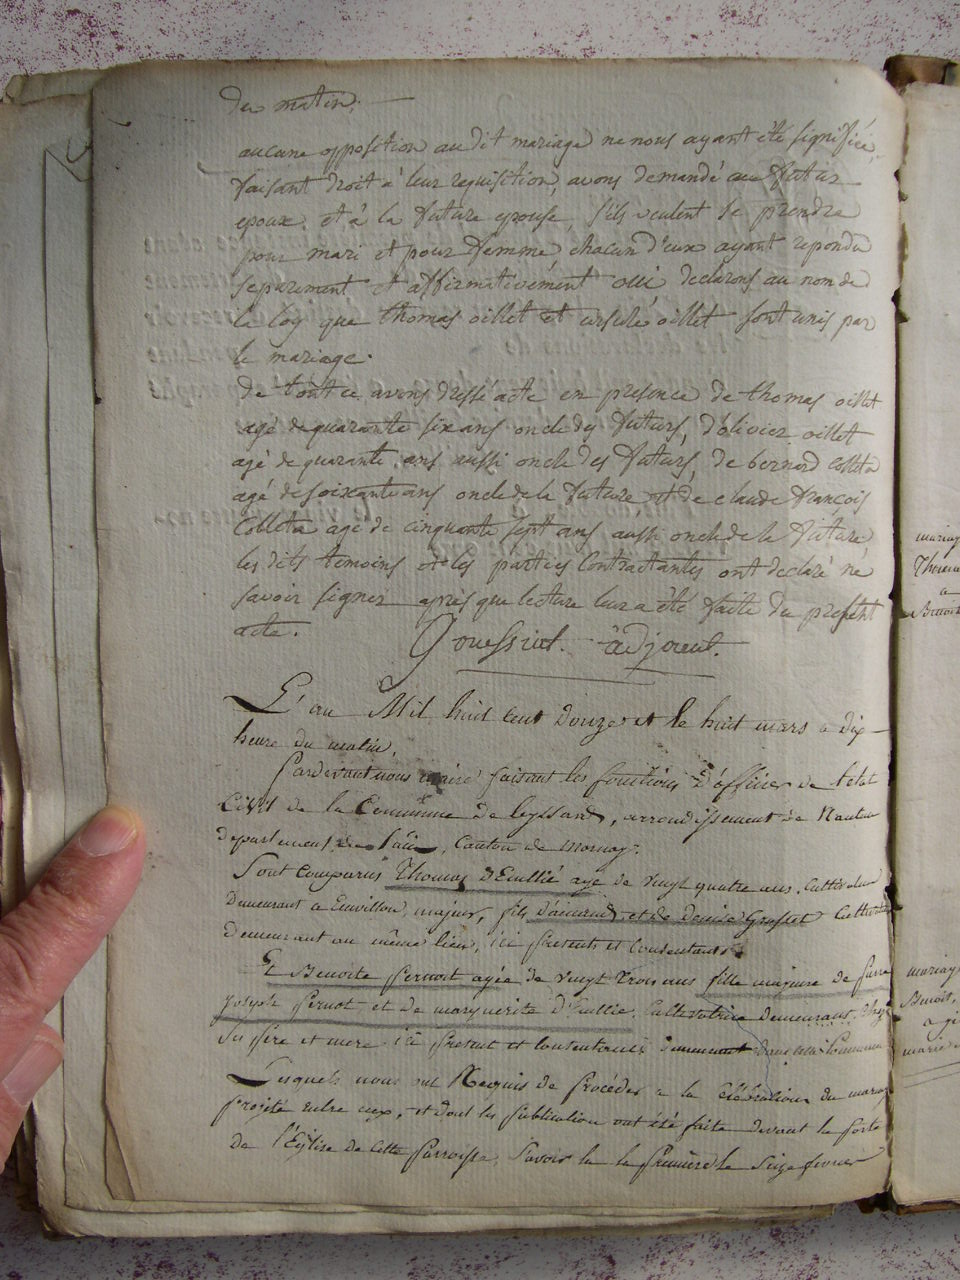 du matin.
aucune opposition audit mariage ne nous ayant été signifiée,
faisant droit à leur requisition, avons demandé au futur
epoux et à la future epouse, s'ils veulent se prendre
pour mari et pour femme chacun d'eux ayant repondu
separement et affirmativement oui declarons au nom de
la loy que thomas oillet et ursule oillet sont unis par
le mariage.
de tout ce avons dressé acte en presence de thomas oillet
agé de quarante six ans oncle des futurs, d'olivier oillet
agé de quarante ans aussi oncle des futurs, de bernard colleta
agé de soixante ans oncle de la future et de claude françois
Colleta agé de cinquante sept ans aussi oncle de la future
les dits temoins et les parties Contractantes ont declaré ne
savoir signer après que lecture leur a été faite du present
acte.
adjoint.
L'an Mil huit cent douze et le huit mars a dix
heure du matin.
Pardevant nous maire faisant les fonctions d'officier de letat
Civil de la Commune de leyssard, arrondissement de Nantua
departement de l'ain, Canton de mornay.
Sont comparus Thomas D'Euillié agé de vingt quatre ans, Cultivateur
Demeurant a majeur, fils et de Denise Grosset Cultivateur
demeurant au même lieu, ici presents et consentants
Et Benoite Pernoit agée de vingt trois ans fille majeure de
joseph Pernot et de marguerite D'Euillié. Cultivatrice demeurant chez
ses pere et mere ici present et consentents dans cette Commune
Lesquels nous ont Requis de Procéder a la célébration du mariage
projeté entre eux, et dont les publication ont été faite devant la porte
de l'Eglise de cette Parroisse, Savoir la Première le Seize fevrier
mariage
a
mariage
Benoit,